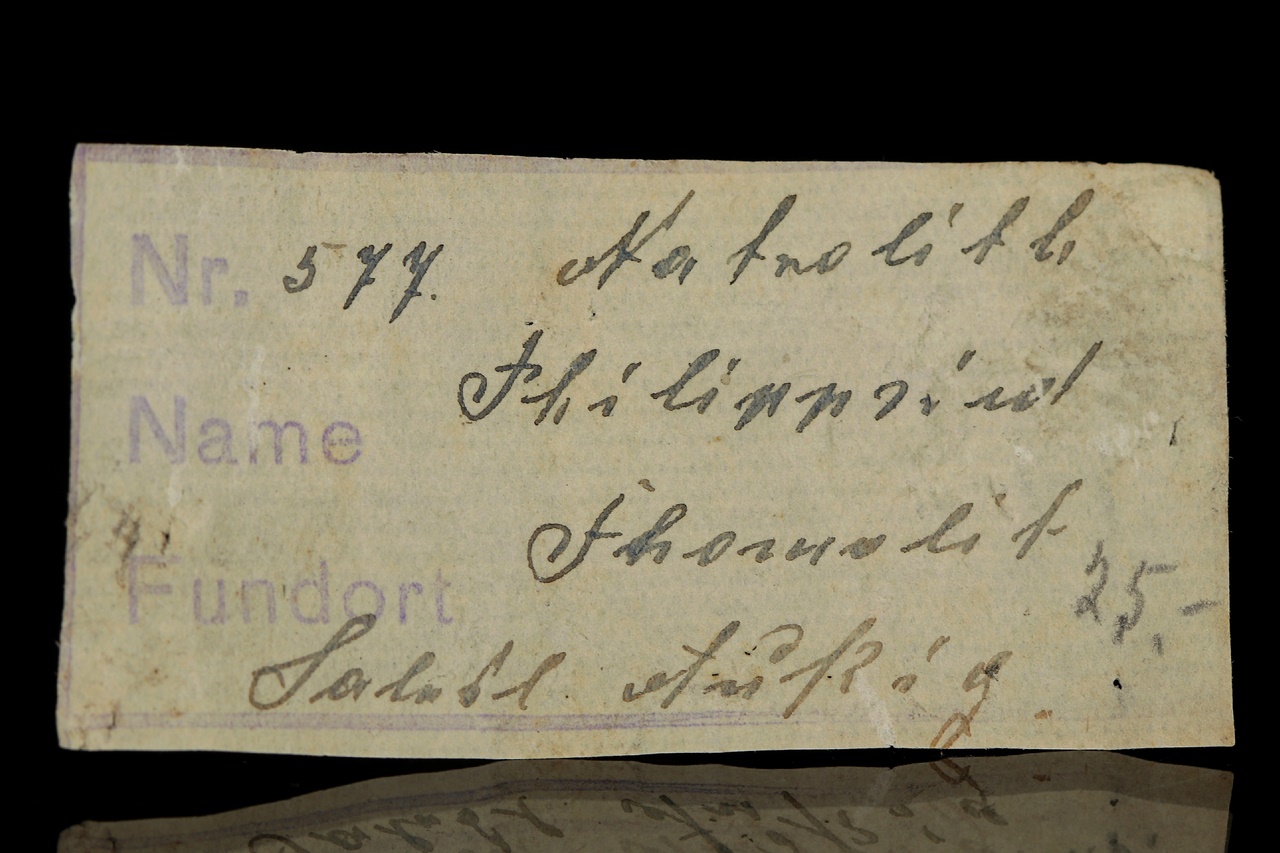 Nr. 577. Natrolith
Name
Fundort 25,-
Salesl Außig